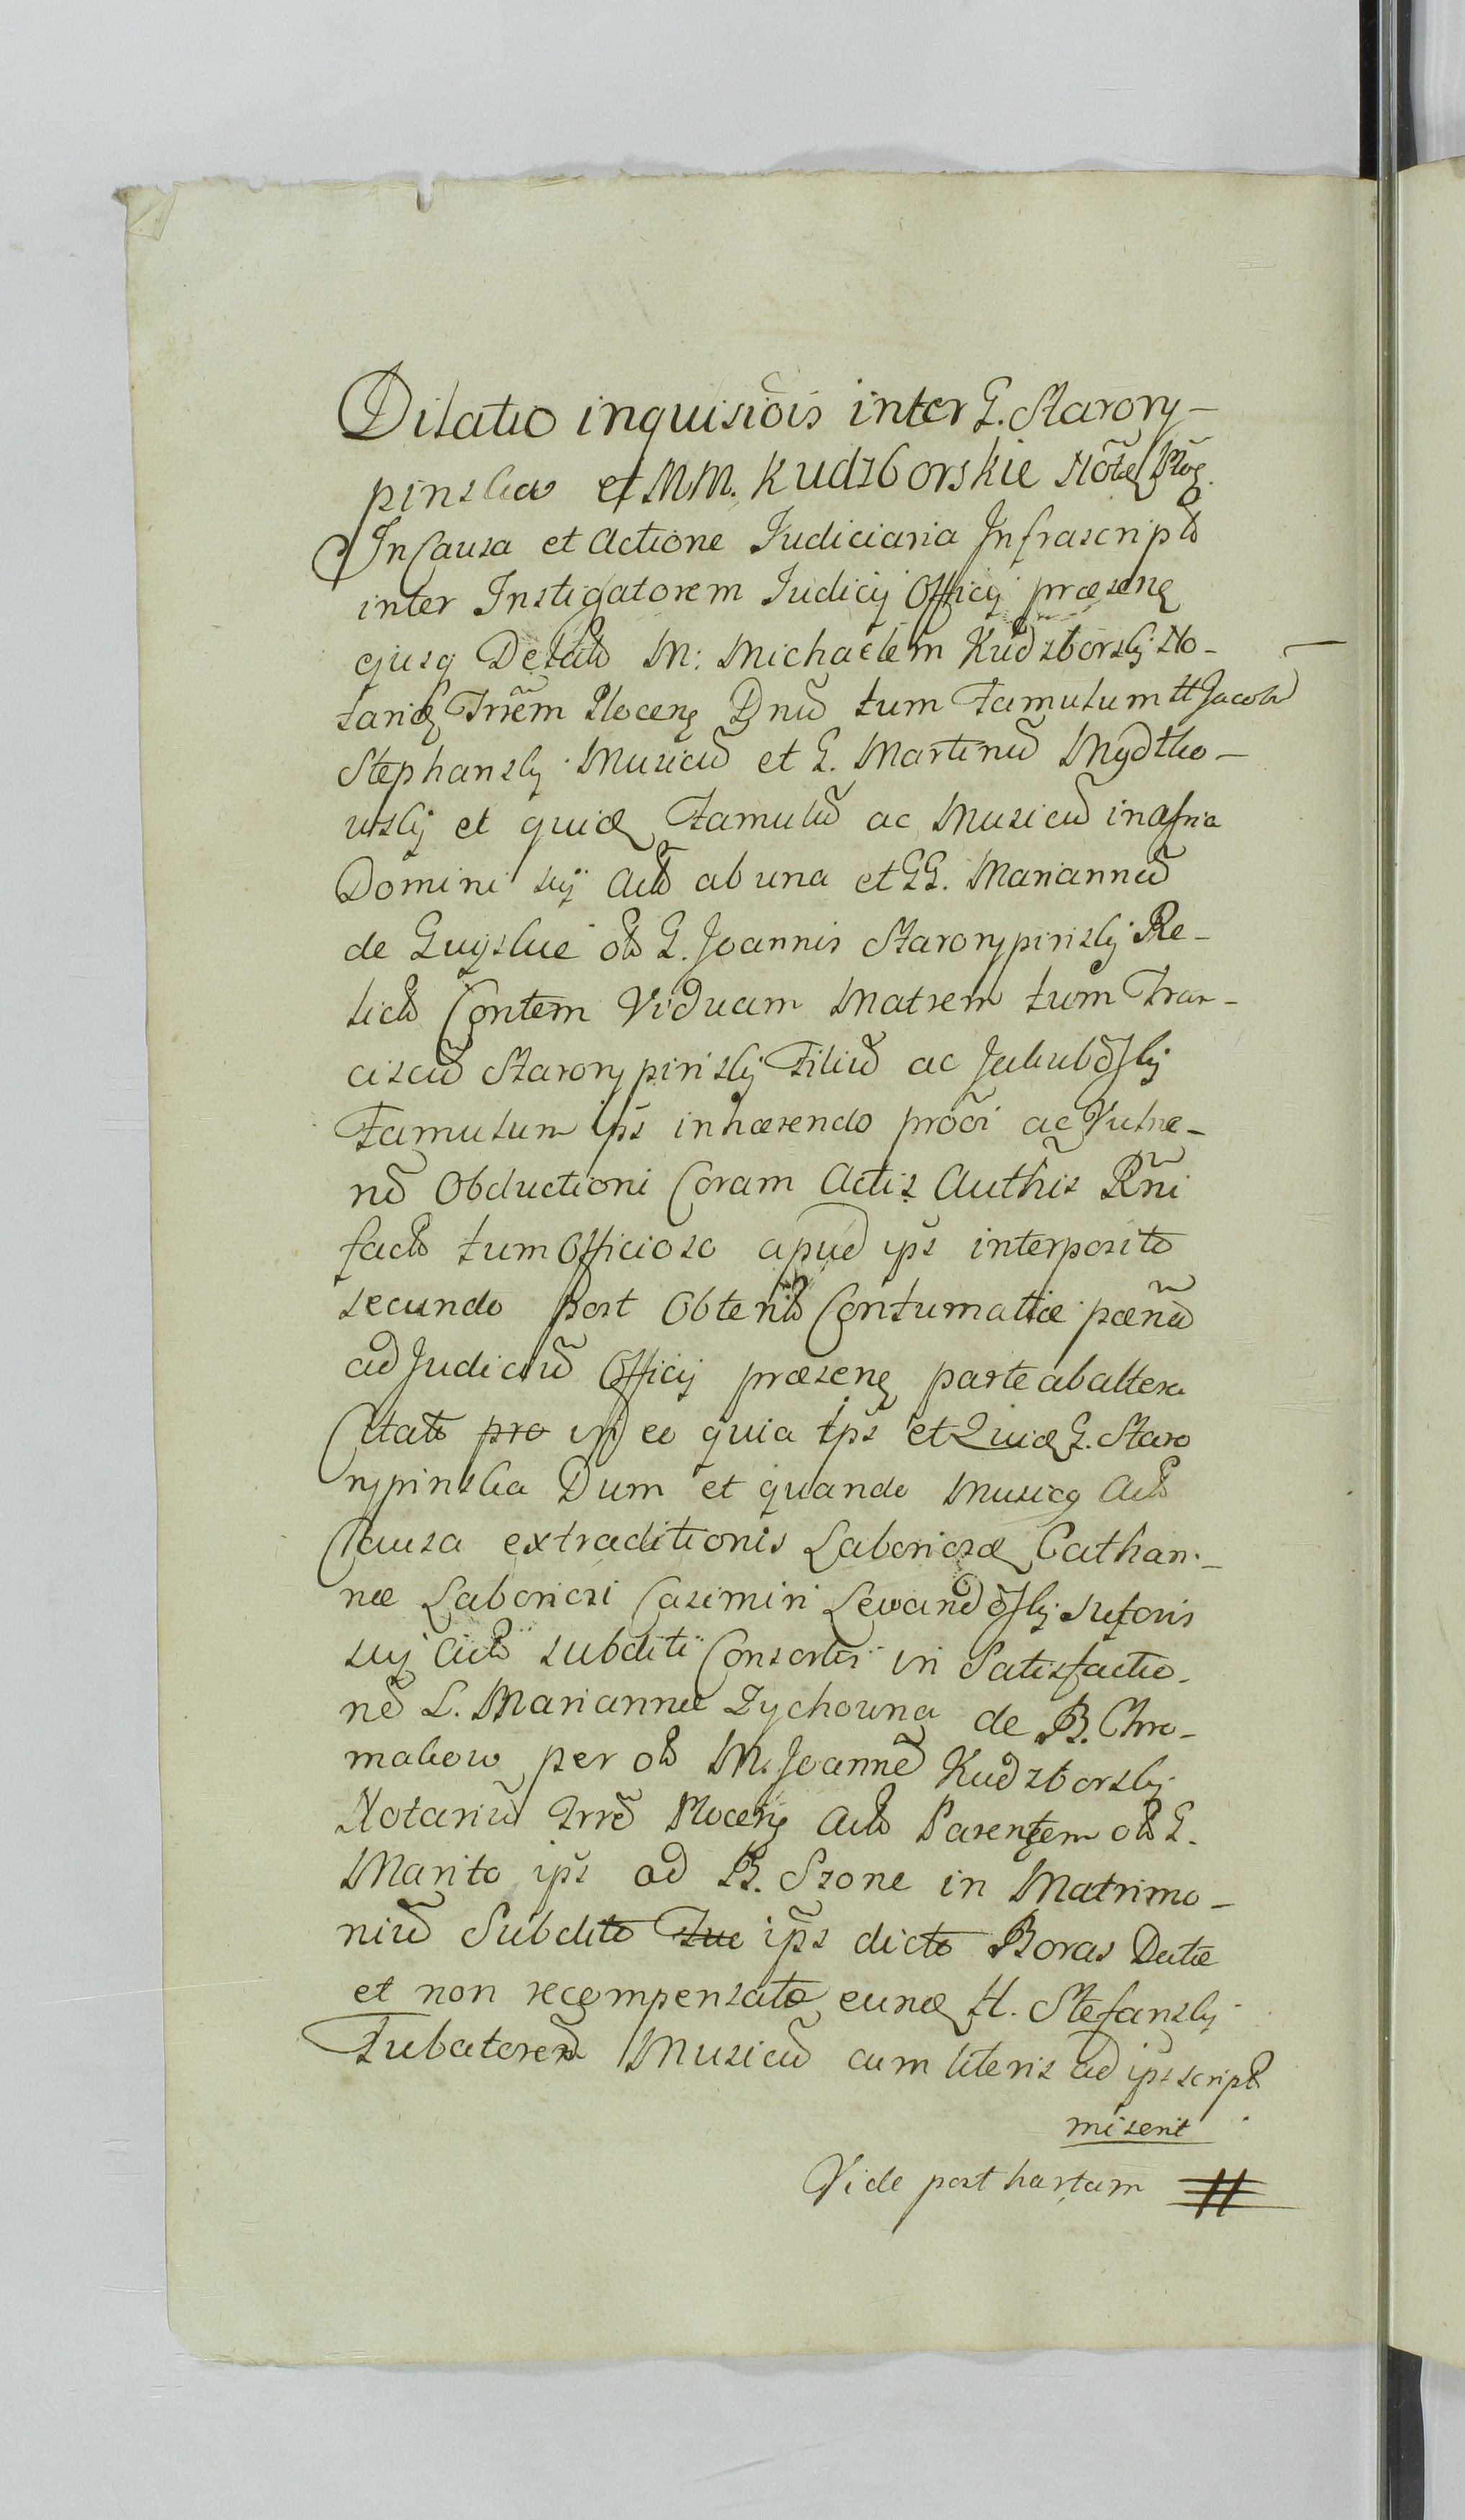 Dilatio inquisiõis inter G. Starory-
pinskĩ et MM. Kudzborskie Nõte Płõc.
In Causa et Actione Iudiciaria Infrascripta
inter Instigatorem Iudicij Officij præsenẽ
ejusq Delatõ M: Michaelem Kudzborskj No-
tariũ Trrẽm Plocenẽ Dnũ tum Famulum H Jacobũ
Stephanskj Musicũ et G. Martinũ Mydtko-
wskj et quidẽ Famulũ ac Musicũ in afsria
Domini sui Actõ ab una et GG. Mariannũ
de Gujskie olõ G. Joannis Starorypinskj Re-
lictã Contem Viduam Matrem tum Fran-
ciscũ Starorypinskj Filiũ ac Jakubõskj
Famulum ips inhærendo prõõi ac Vulne-
rũ Obductioni Coram Actis Authis Rñi
factõ tum Officioso apud ips interposito
secundo post Obtentã Contumatiæ pænã
ad Judiciũ Officij præsenẽ parte ab altera
Citatõ pro in eo quia ips et Quidẽ G. Staro
rypinska Dum et quando Musicẽ Actõ
Causa extraditionis Laboriosæ Cathari-
næ Laboriosi Casimiri Lewandõskj sutoris
sui Actõ subditi Consortis in Satisfactio-
nẽ L. Mariannæ Zychowna de B. Chro-
makow per olõ M. Joannẽ Kudzborskj
Notariũ Trrẽ Plocenẽ Actõ Parentem olõ G.
Marito ips ad B. Szone in Matrimo-
niũ Subdito suo ips dicto Boras Datæ
et non recompensatæ eundẽ H. Stefanskj
Tubatorem Musicũ cum literis ad ips scriptã
miserit
Vide post hartam #